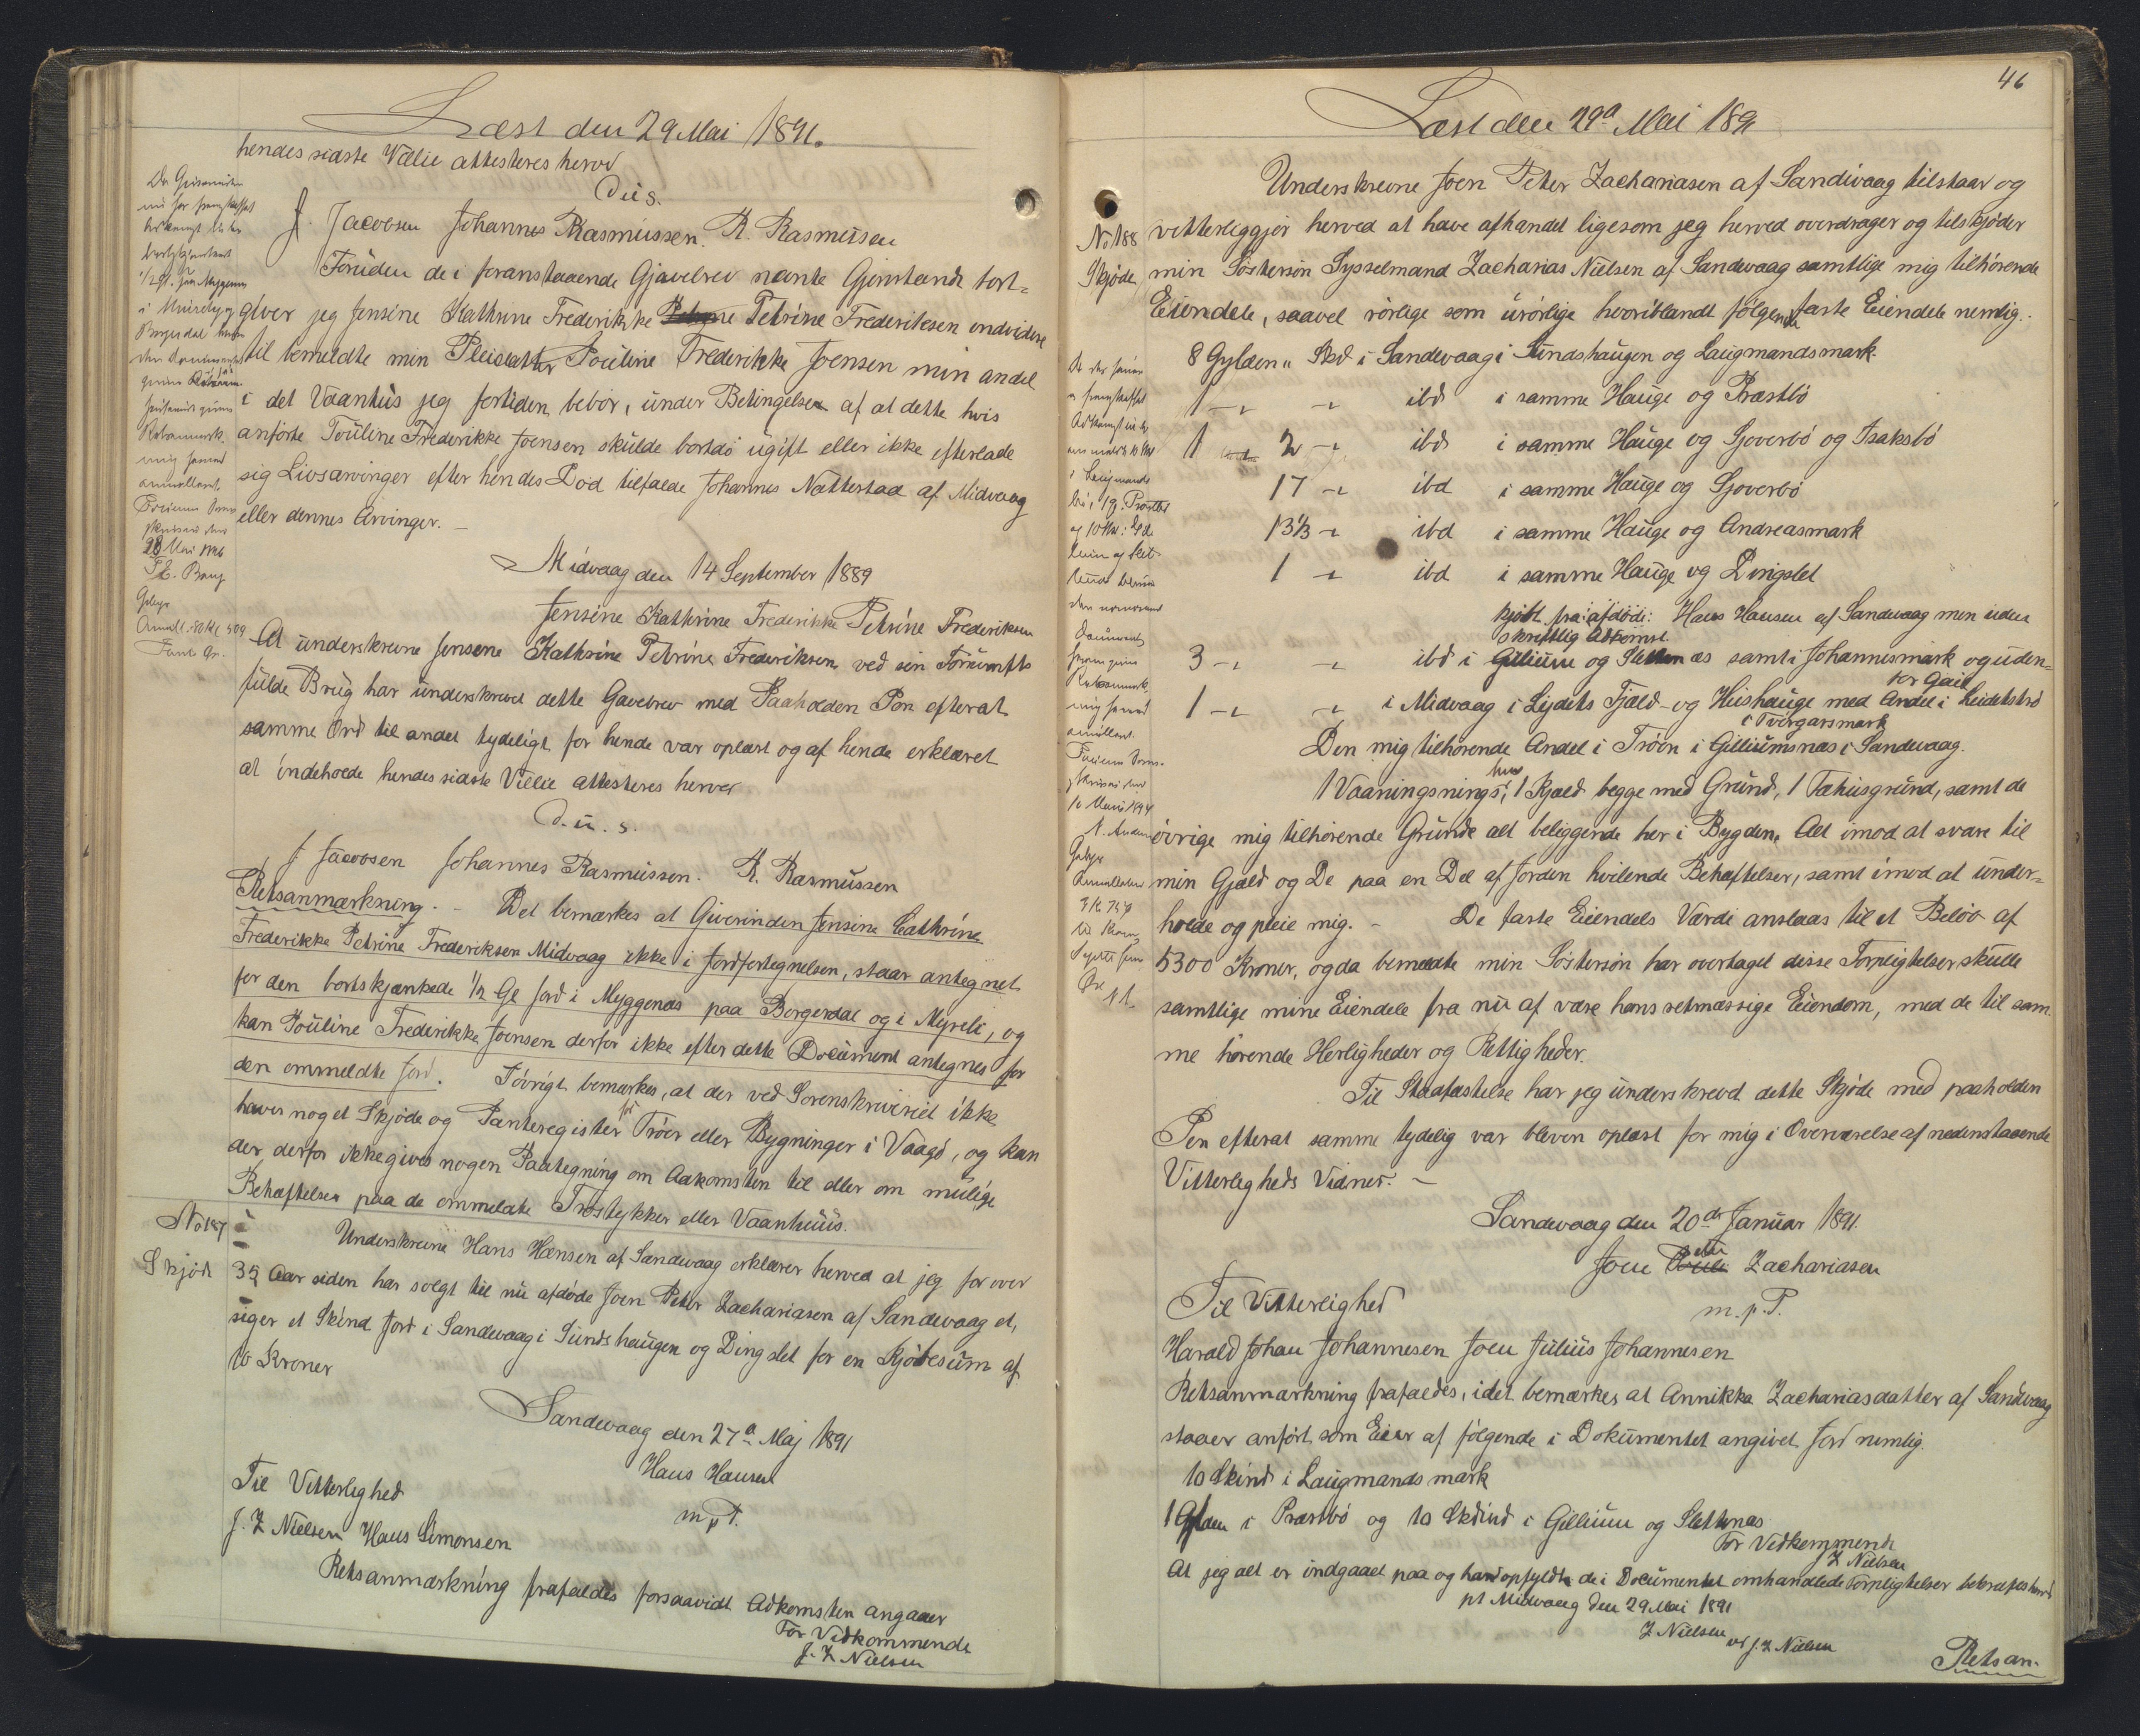 Læst den 29 Mai 1891.
hendes sidste Villie attesteres herved
D.u.s.
J. Jacobsen Johannes Rasmussen. R. Rasmussen
Foruden de i foranstaaende Gjavebrev nævnte Gjenstande bort=
giver jeg Jensine Kathrine Frederikke Petrine Frederiksen endvidere
til bemeldte min Pleiedatter Pouline Frederikke Joensen min andel
i det Vaanhus jeg fortiden bebor, under Betingelse af at dette hvis
anførte Pouline Frederikke Joensen skulde bortdø ugift eller ikke efterlade
sig Livsarvinger efter hendes Død tilfalde Johannes Nattestad af Midvaag
eller dennes Arvinger. –
Midvaag den 14 September 1889
Jensine Kathrine Frederikke Petrine Frederiksen
At underskrevne Jensene Kathrine Petrine Frederiksen ved sin Fornufts
fulde Brug har underskrevet dette Gavebrev med Paaholden Pen efterat
samme Ord til andet tydeligt for hende var oplæst og af hende erklæret
at indeholde hendes sidste Villie attesteres herved
D.u.s.
J Jacobsen Johannes Rasmussen. R. Rasmussen
Retsanmærkning. – Det bemærkes at Giverinden Jensine Cathrine
Frederikke Petrine Frederiksen Midvaag ikke i Jordfortegnelsen, staar antegnet
for den bortskjænkede 1/2 Gl Jord i Myggenæs paa Borgerdal og i Myreli, og
kan Pouline Frederikke Joensen derfor ikke efter dette Document antegnes for
den ommeldte Jord. Iøvrigt bemærkes, at der ved Sorenskriveriet ikke
haves noget Skjøde og Panteregister for Trøer eller Bygninger i Vaagø, og kan
der derfor ikke gives nogen Paategning om Adkomsten til eller om mulige
Behæftelser paa de ommeldte Trøstykker eller Vaanhuus.
No 187
Skjøde
Underskrevne Hans Hansen af Sandevaag erklærer herved at jeg for over
35 Aar siden har solgt til nu afdøde Joen Peter Zachariasen af Sandevaag et,
siger et Skind Jord i Sandevaag i Sundshaugen og Dingslet for en Kjøbesum af
10 Kroner
Sandevaag den 27de Maj 1891
Hans Hansen
m.p.P.
Til Vitterlighed
J. Z Nielsen Hans Simonsen
Retsanmærkning frafaldes forsaavidt Adkomsten angaaer
For Vedkommende
J. Z Nielsen
46
Læst den 29d Mai 1891
No 188
Skjøde
Underskrevne Joen Peter Zachariasen af Sandivaag tilstaar og
vitterliggjør herved at have afhandet ligesom jeg herved overdrager og tilskjøder
min Søstersøn Sysselmand Zacharias Nielsen af Sandevaag samtlige mig tilhørende
Eiendele, saavel rørlige som urørlige hvoriblandt følgende faste Eiendele nemlig.
8 Gylden „ Skd i Sandevaag i Sundshaugen og Laugmandsmark.
1 – „ – „ ibd i samme Hauge og Præstbø
1 – „ 2 – „ ibd i samme Hauge og Gjoverbø og Isaksbø
17 – „ ibd i samme Hauge og Gjoverbø
13 1/3 – „ ibd i samme Hauge og Andreasmark
1 – „ ibd i samme Hauge og Dingslet
kjøbt fra afdøde: Hans Hansen af Sandevaag men uden
skriftlig Adkomst.
3 – „ – „ ibd i Gillium og Slettenæs samt i Johannesmark og uden=
for Gaid
1 – „ – „ i Midvaag i Lydets Fjæld og Huishauge med Andel i Leidetstrø
i Tvorgarsmark
Den mig tilhørende Andel i Trøen i Gilliumsnæs i Sandevaag.
1 Vaaningsnings hus, 1 Kjæld begge med Grund, 1 Fæhusgrund, samt de
øvrige mig tilhørende Grunde alt beliggende her i Bygden. Alt imod at svare til
min Gjæld og De paa en Del af Jorden hvilende Behæftelser, samt imod at under=
holde og pleie mig. – De faste Eiendels Værdi anslaas til et Beløb af
5300 Kroner, og da bemeldte min Søstersøn har overtaget disse Forpligtelser skulle
samtlige mine Eiendele fra nu af være hans retmæssige Eiendom, med de til sam
me hørende Herligheder og Rettigheder.
Til Stadfæstelse har jeg underskrevet dette Skjøde med paaholden
Pen efterat samme tydelig var bleven oplæst for mig i Overværelse af nedenstaaende
Vitterligheds Vidner. –
Sandevaag den 20de Januar 1891.
Joen Peter Zachariasen
m.p.P.
Til Vitterlighed
Harald Johan Johannesen Joen Julius Johannesen
Retsanmærkning frafaldes, idet bemærkes at Annikka Zachariasdatter af Sandvaag
staaer anført som Eier af følgende i Dokumentet angivet Jord nemlig.
10 Skind i Laugmandsmark
1 Gylden i Præstbø og 10 Skind i Gillium og Slettenæs
For Vedkommende
J Z Nielsen
At jeg alt er indgaaet paa og har opfyldt de i Documentet omhandlede Forpligtelser bekræftes herved
pt Midvaag den 29 Mai 1891
Z Nielsen
vd J. Z Nielsen
Retsan-